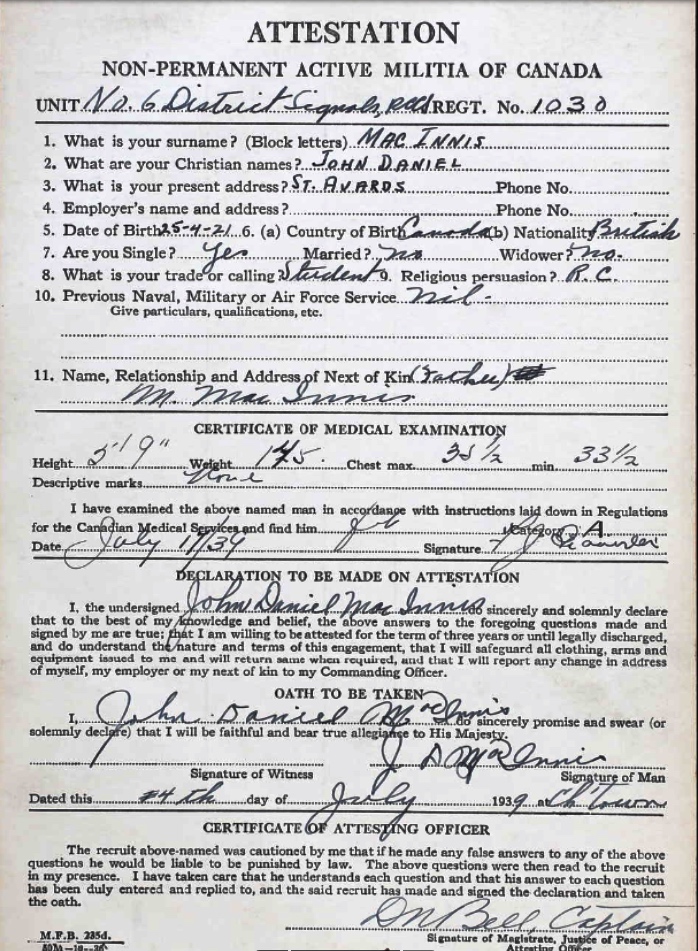 ATTESTATION
NON-PERMANENT ACTIVE MILITIA OF CANADA
UNIT No. 6 District Signals, RCCS REGT. No. 1030
1. What is your surname? (Block letters) MAC INNIS
2. What are your Christian names? JOHN DANIEL
3. What is your present address? ST. AVARDS Phone No.
4. Employer's name and address? Phone No.
5. Date of Birth 25-4-21 6. (a) Country of Birth Canada (b) Nationality British
7. Are you Single? Yes Married? no Widower? no.
8. What is your trade or calling? Student 9. Religious persuasion? R.C.
10. Previous Naval, Military or Air Force Service nil -
Give particulars, qualifications, etc.
11. Name, Relationship and Address of Next of Kin (Father)
M. Mac Innis
CERTIFICATE OF MEDICAL EXAMINATION
Height 5'9" Weight 145. Chest max. 35 1/2 min. 33 1/2
Descriptive marks None
I have examined the above named man in accordance with instructions laid down in Regulations
for the Canadian Medical Services and find him fit Category A.
Date July 17/39 Signature
DECLARATION TO BE MADE ON ATTESTATION
I, the undersigned John Daniel Mac Innis do sincerely and solemnly declare
that to the best of my knowledge and belief, the above answers to the foregoing questions made and
signed by me are true; that I am willing to be attested for the term of three years or until legally discharged,
and do understand the nature and terms of this engagement, that I will safeguard all clothing, arms and
equipment issued to me and will return same when required, and that I will report any change in address
of myself, my employer or my next of kin to my Commanding Officer.
OATH TO BE TAKEN
I, John Daniel MacInnis do sincerely promise and swear (or
solemnly declare) that I will be faithful and bear true allegiance to His Majesty.
J D MacInnis
Signature of Witness Signature of Man
Dated this 4th day of July 1939 at Ch'town
CERTIFICATE OF ATTESTING OFFICER
The recruit above-named was cautioned by me that if he made any false answers to any of the above
questions he would be liable to be punished by law. The above questions were then read to the recruit
in my presence. I have taken care that he understands each question and that his answer to each question
has been duly entered and replied to, and the said recruit has made and signed the declaration and taken
the oath.
DN Bell, Captain
M.F.B. 235d. Signature of Magistrate, Justice of Peace, or
Attesting Officer